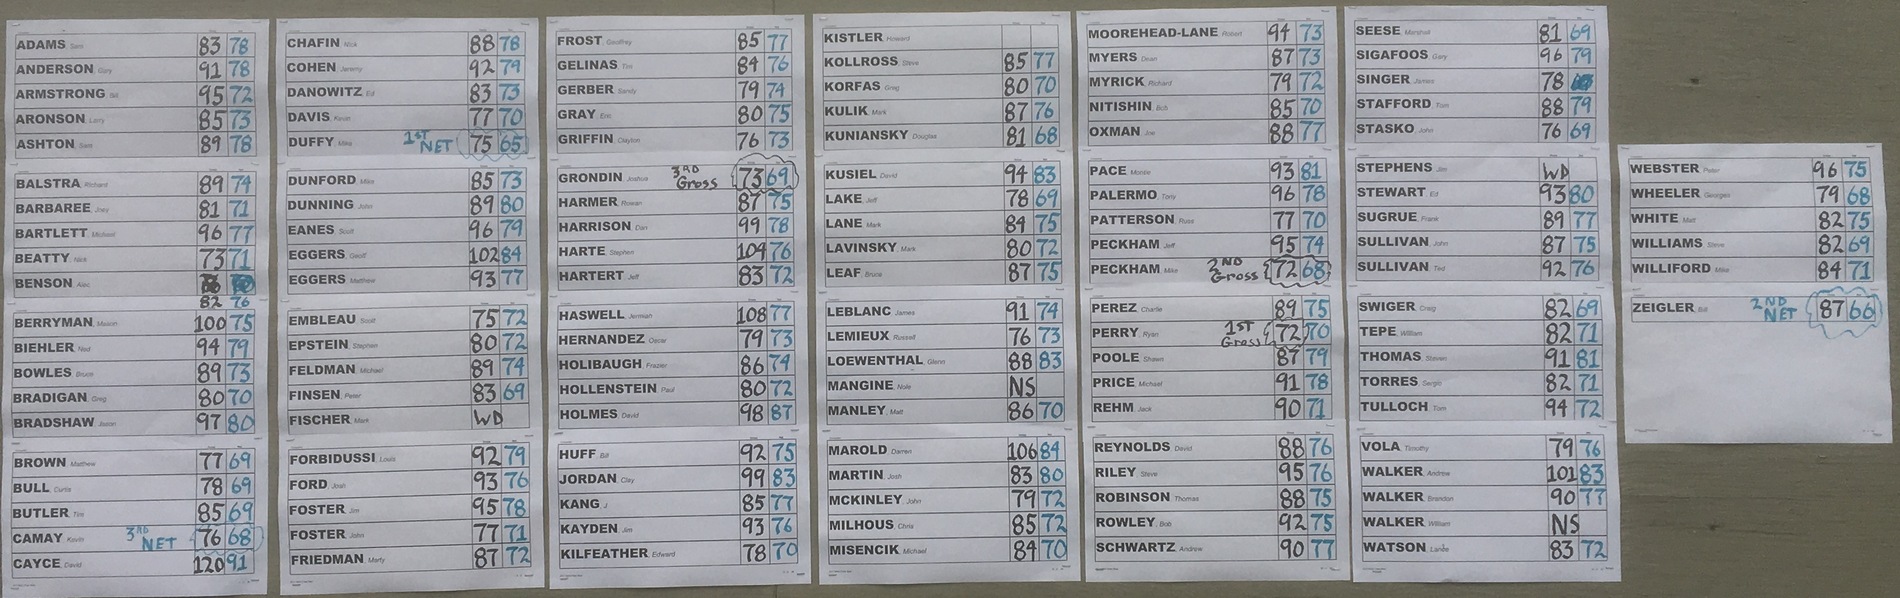 ADAMS, Sam 83 78
ANDERSON, Gary 91 78
ARMSTRONG, Bill 95 72
ARONSON, Larry 85 73
ASHTON, Sam 89 78
BALSTRA, Richard 89 74
BARBAREE, Joey 81 71
BARTLETT, Michael 96 77
BEATTY, Nick 73 71
BENSON, Alec
82 76
BERRYMAN, Mason 100 75
BIEHLER, Ned 94 79
BOWLES, Bruce 89 73
BRADIGAN, Greg 80 70
BRADSHAW, Jason 97 80
BROWN, Matthew 77 69
BULL, Curtis 78 69
BUTLER, Tim 85 69
CAMAY, Kevin 3RD NET 76 68
CAYCE, David 120 91
CHAFIN, Nick 88 78
COHEN, Jeremy 92 79
DANOWITZ, Ed 83 73
DAVIS, Kevin 77 70
DUFFY, Mike 1ST NET 75 65
DUNFORD, Mike 85 73
DUNNING, John 89 80
EANES, Scott 96 79
EGGERS, Geoff 102 84
EGGERS, Matthew 93 77
EMBLEAU, Scott 75 72
EPSTEIN, Stephen 80 72
FELDMAN, Michael 89 74
FINSEN, Peter 83 69
FISCHER, Mark WD
FORBIDUSSI, Louis 92 79
FORD, Josh 93 76
FOSTER, Jim 95 78
FOSTER, John 77 71
FRIEDMAN, Marty 87 72
FROST, Geoffrey 85 77
GELINAS, Tim 84 76
GERBER, Sandy 79 74
GRAY, Eric 80 75
GRIFFIN, Clayton 76 73
GRONDIN, Joshua 3RD Gross 73 69
HARMER, Rowan 87 75
HARRISON, Dan 99 78
HARTE, Stephen 104 76
HARTERT, Jeff 83 72
HASWELL, Jermiah 108 77
HERNANDEZ, Oscar 79 73
HOLIBAUGH, Frazier 86 74
HOLLENSTEIN, Paul 80 72
HOLMES, David 98 87
HUFF, Bill 92 75
JORDAN, Clay 99 83
KANG, J 85 77
KAYDEN, Jim 93 76
KILFEATHER, Edward 78 70
KISTLER, Howard
KOLLROSS, Steve 85 77
KORFAS, Greg 80 70
KULIK, Mark 87 76
KUNIANSKY, Douglas 81 68
KUSIEL, David 94 83
LAKE, Jeff 78 69
LANE, Mark 84 75
LAVINSKY, Mark 80 72
LEAF, Bruce 87 75
LEBLANC, James 91 74
LEMIEUX, Russell 76 73
LOEWENTHAL, Glenn 88 83
MANGINE, Nole NS
MANLEY, Matt 86 70
MAROLD, Darren 106 84
MARTIN, Josh 83 80
MCKINLEY, John 79 72
MILHOUS, Chris 85 72
MISENCIK, Michael 84 70
MOOREHEAD-LANE, Robert 94 73
MYERS, Dean 87 73
MYRICK, Richard 79 72
NITISHIN, Bob 85 70
OXMAN, Joe 88 77
PACE, Montie 93 81
PALERMO, Tony 96 78
PATTERSON, Russ 77 70
PECKHAM, Jeff 95 74
PECKHAM, Mike 2ND Gross 72 68
PEREZ, Charlie 89 75
PERRY, Ryan 1ST Gross 72 70
POOLE, Shawn 87 79
PRICE, Michael 91 78
REHM, Jack 90 71
REYNOLDS, David 88 76
RILEY, Steve 95 76
ROBINSON, Thomas 88 75
ROWLEY, Bob 92 75
SCHWARTZ, Andrew 90 77
SEESE, Marshall 81 69
SIGAFOOS, Gary 96 79
SINGER, James 78
STAFFORD, Tom 88 79
STASKO, John 76 69
STEPHENS, Jim WD
STEWART, Ed 93 80
SUGRUE, Frank 89 77
SULLIVAN, John 87 75
SULLIVAN, Ted 92 76
SWIGER, Craig 82 69
TEPE, William 82 71
THOMAS, Steven 91 81
TORRES, Sergio 82 71
TULLOCH, Tom 94 72
VOLA, Timothy 79 76
WALKER, Andrew 101 83
WALKER, Brandon 90 77
WALKER, William NS
WATSON, Lanée 83 72
WEBSTER, Peter 96 75
WHEELER, Georges 79 68
WHITE, Matt 82 75
WILLIAMS, Steve 82 69
WILLIFORD, Mike 84 71
ZEIGLER, Bill 2ND NET 87 66